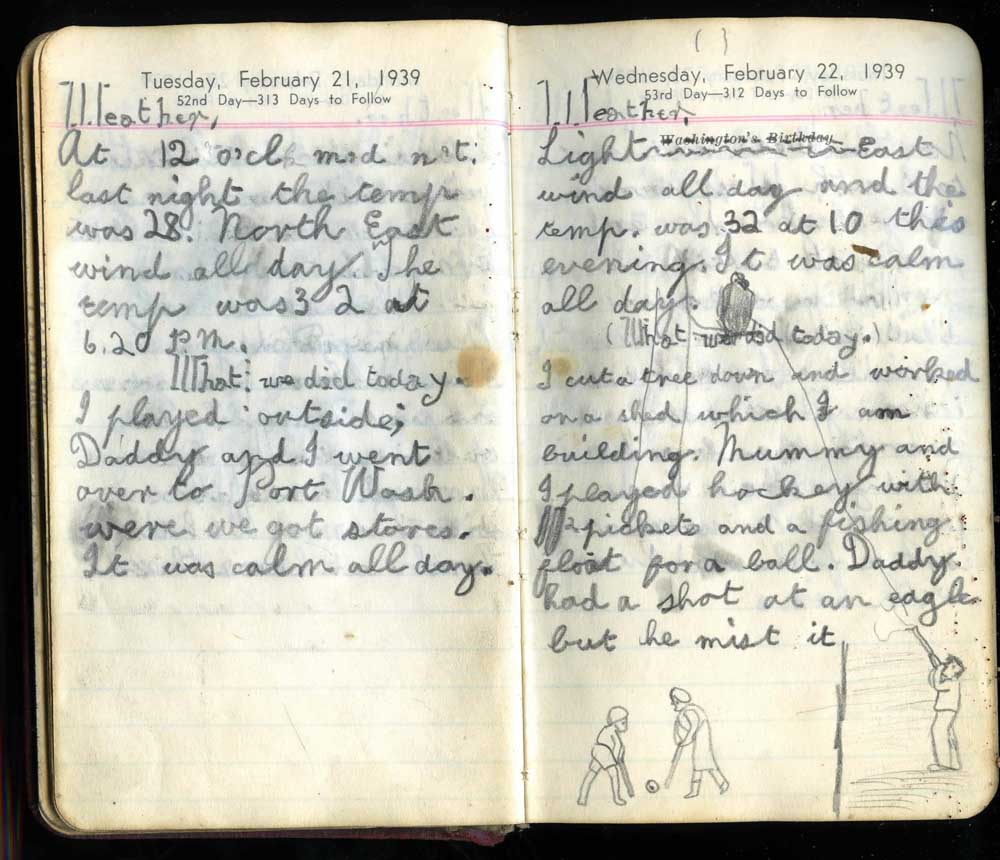 Tuesday, February 21, 1939
52nd Day—313 Days to Follow
Weather,
At 12 o'clk mid nt:
last night the temp
was 28. North East
wind all day. The
temp was 32 at
6.20 P.M.
What we did today.
I played outside;
Daddy and I went
over to Port Wash.
were we got stores.
It was calm all day.
Wednesday, February 22, 1939
53rd Day—312 Days to Follow
Weather,
Washington's Birthday
Light East
wind all day and the
temp. was 32 at 10 this
evening. It was calm
all day.
(What we did today.)
I cut a tree down and worked
on a shed which I am
building. Mummy and
I played hockey with
2 pickets and a fishing
float for a ball. Daddy
had a shot at an eagle
but he mist it